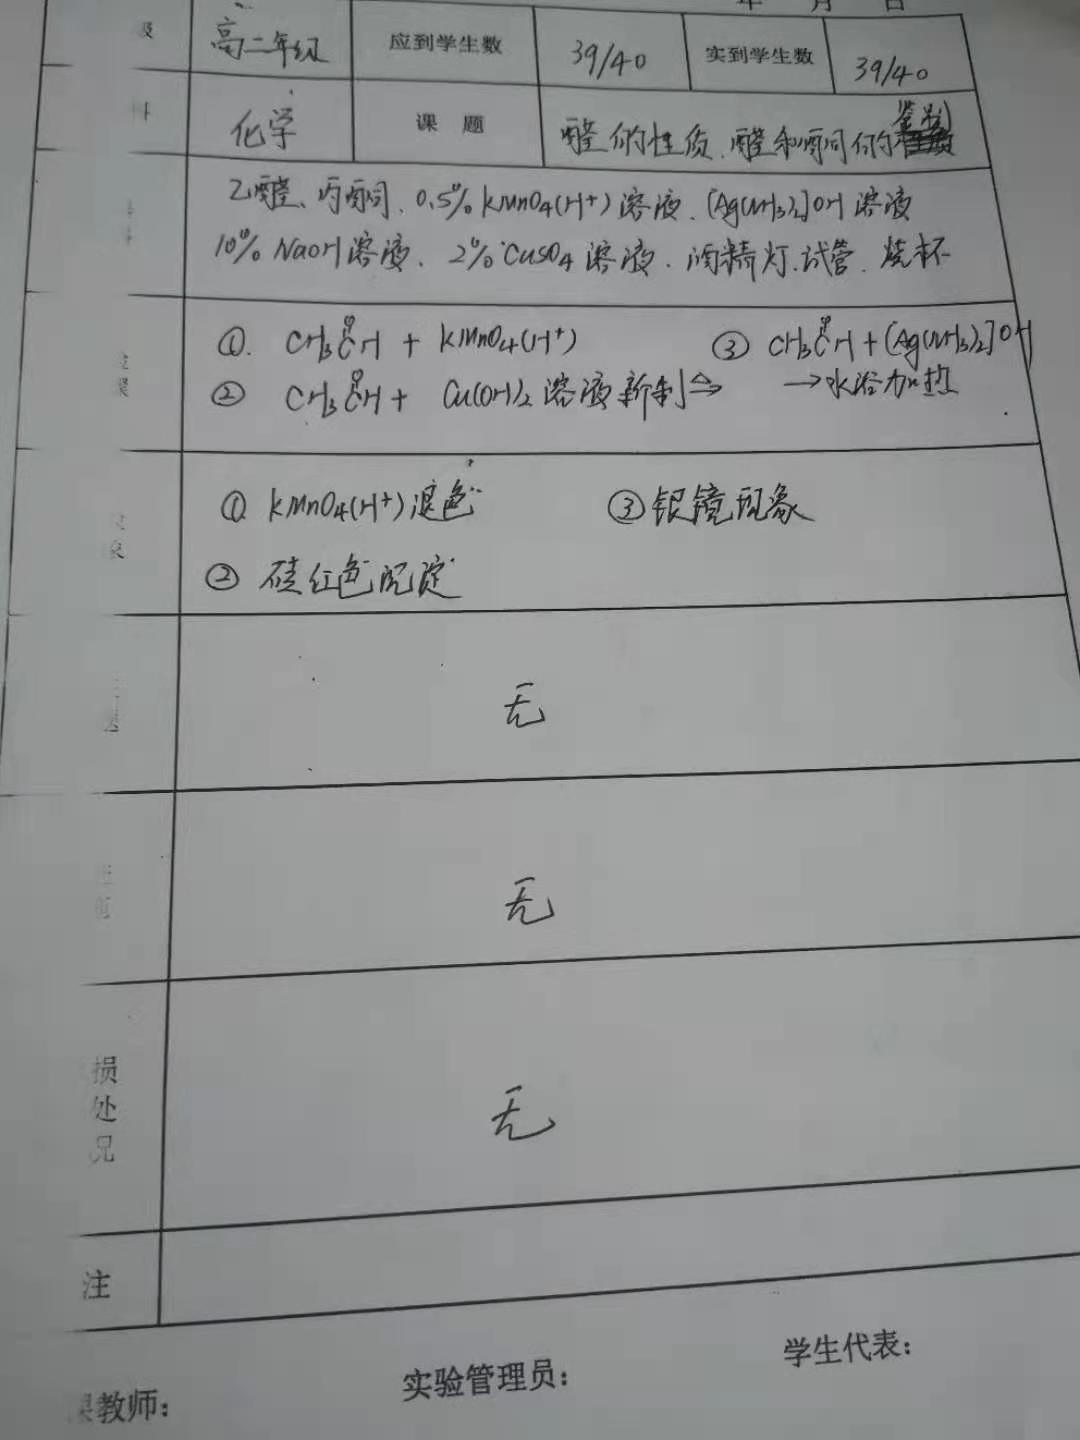 年 月 日
级 高二年级 应到学生数 39/40 实到学生数 39/40
科 化学 课 题 醛的性质、醛和酮的鉴别
乙醛、丙酮、0.5% KMnO4(H+)溶液、[Ag(NH3)2]OH溶液
10% NaOH溶液、2% CuSO4溶液、酒精灯、试管、烧杯
①. CH3CH + KMnO4(H+) ③ CH3CH + [Ag(NH3)2]OH
O O
② CH3CH + Cu(OH)2 溶液新制 △→ →水浴加热
O
① KMnO4(H+)退色 ③银镜现象
② 砖红色沉淀
无
无
损
处
况
无
注
课教师: 实验管理员: 学生代表: